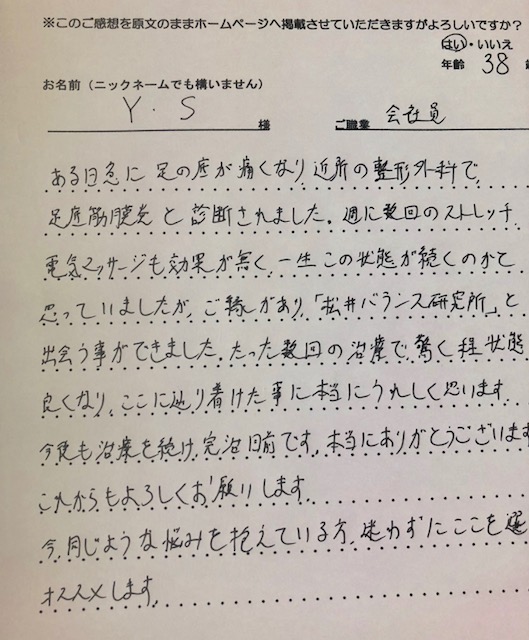 ※このご感想を原文のままホームページへ掲載させていただきますがよろしいですか？
はい・いいえ
年齢 38
お名前（ニックネームでも構いません）
Y・S 様 ご職業 会社員
ある日急に足の底が痛くなり近所の整形外科で
足底筋膜炎と診断されました。週に数回のストレッチ
電気マッサージも効果が無く、一生この状態が続くのかと
思っていましたが、ご縁があり「松井バランス研究所」と
出会う事ができました。たった数回の治療で、驚く程状態
良くなり、ここに辿り着けた事に本当にうれしく思います。
今後も治療を続け、完治目前です。本当にありがとうございます
これからもよろしくお願いします。
今、同じような悩みを抱えている方、迷わずにここを選
オススメします。